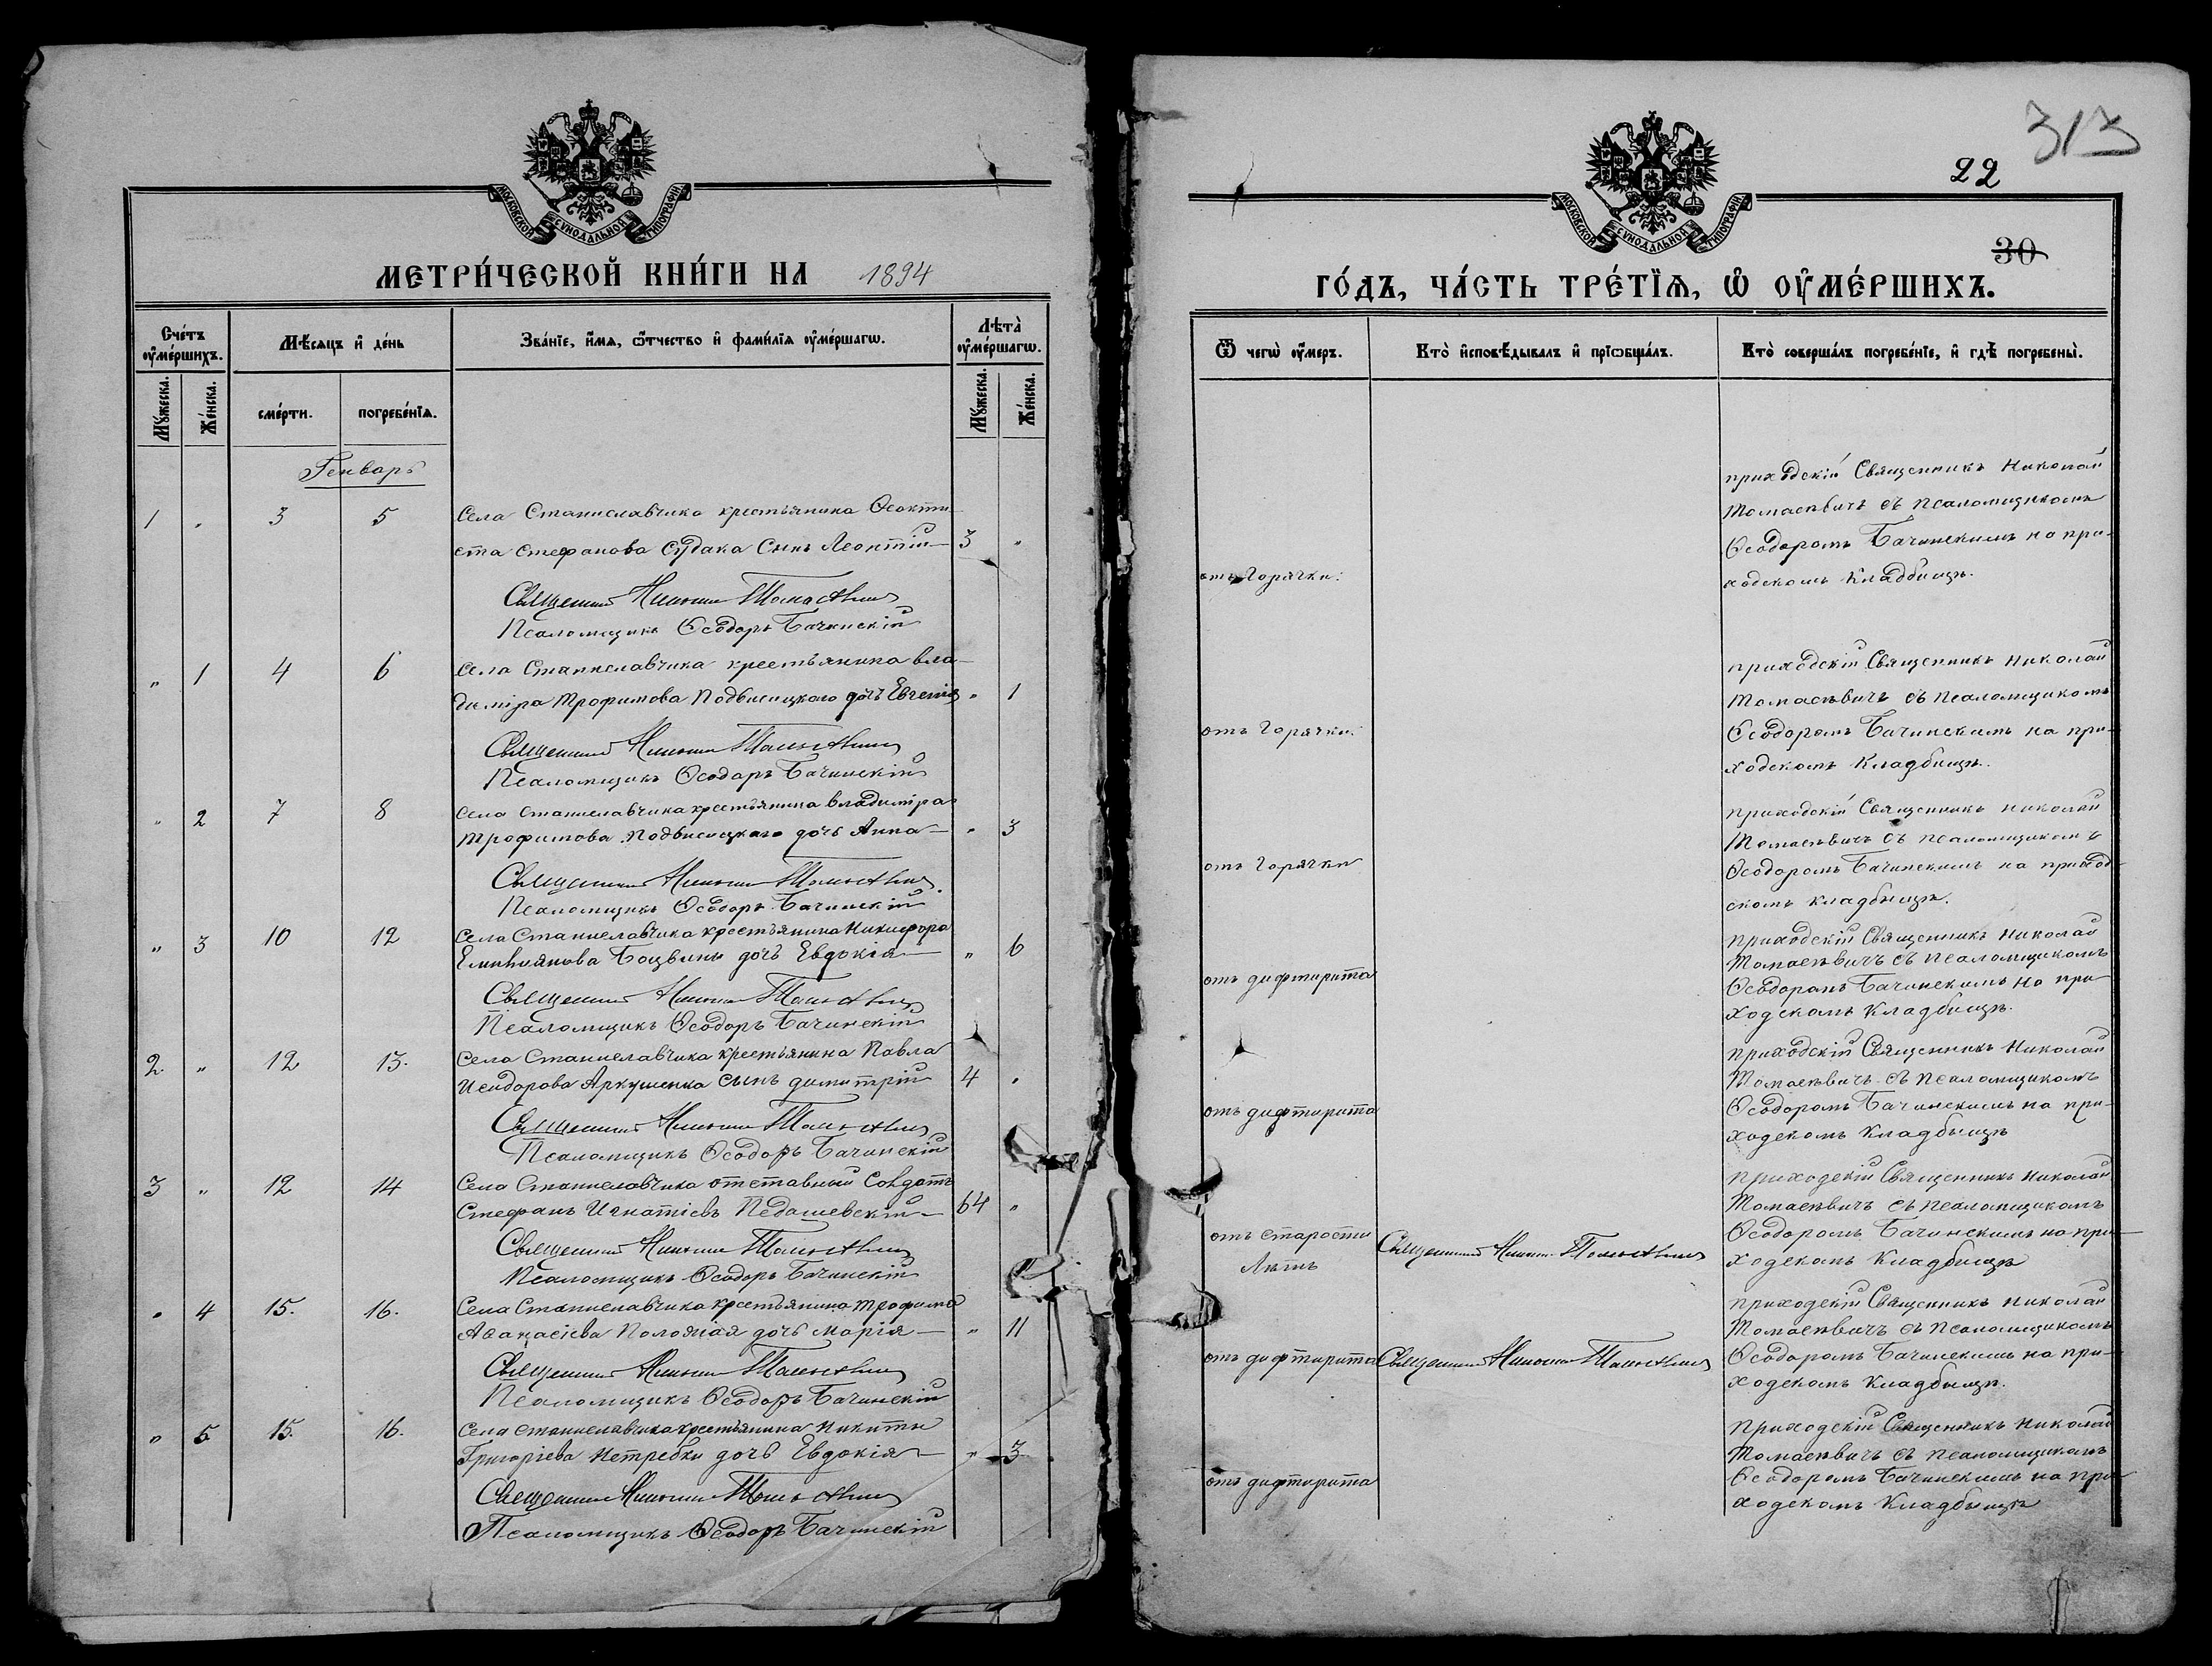 МОСКОВСКОЙ СѴНОДАЛЬНОЙ ТИПОГРАФІИ
МЕТРИ́ЧЕСКОЙ КНИ́ГИ НА 1894
Сче́тъ ᲂу҆ме́ршихъ.
Мѣ́сяцъ и҆ де́нь
Зва́нїе, и҆́мѧ, ѻ҆́тчество и҆ фами́лїѧ ᲂу҆ме́ршагѡ.
Лѣта̀ ᲂу҆ме́ршагѡ.
Мꙋ́жеска.
Же́нска.
сме́рти.
погребе́нїѧ.
Мꙋ́жеска.
Же́нска.
Генварь
1 " 3 5 Села Станиславчика крестьянина Ѳеокти-
ста Стефанова Судака Сынъ Леонтій— 3 "
Священникъ Николай Томасевичъ
Псаломщикъ Ѳеодоръ Бачинскій
" 1 4 6 Села Станиславчика крестьянина Вла-
диміра Трофимова Подвисоцкого дочь Евгенія " 1
Священникъ Николай Томасевичъ
Псаломщикъ Ѳеодоръ Бачинскій
" 2 7 8 Села Станиславчика крестьянина Владиміра
Трофимова Подвисоцкаго дочь Анна— " 3
Священникъ Николай Томасевичъ
Псаломщикъ Ѳеодоръ Бачинскій
" 3 10 12 Села Станиславчика крестьянина Никифора
Емиліянова Боцвины дочь Евдокія— " 6
Священникъ Николай Томасевичъ
Псаломщикъ Ѳеодоръ Бачинскій
2 " 12 13. Села Станиславчика крестьянина Павла
Исидорова Аркушенка сынъ Димитрій 4 "
Священникъ Николай Томасевичъ
Псаломщикъ Ѳеодоръ Бачинскій
3 " 12 14 Села Станиславчика отставный Солдатъ
Стефанъ Игнатіевъ Педашевскій— 64 "
Священникъ Николай Томасевичъ
Псаломщикъ Ѳеодоръ Бачинскій
" 4 15. 16. Села Станиславчика крестьянина Трофима
Аѳанасіева дочь Марія— " 11
Священникъ Николай Томасевичъ
Псаломщикъ Ѳеодоръ Бачинскій
" 5 15. 16. Села Станиславчика крестьянина Никиты
Григоріева Нетребки дочь Евдокія— " 3
Священникъ Николай Томасевичъ
Псаломщикъ Ѳеодоръ Бачинскій
313
22
МОСКОВСКОЙ СѴНОДАЛЬНОЙ ТИПОГРАФІИ
30
ГО́ДЪ, ЧА́СТЬ ТРЕ́ТЇѦ, Ѡ҆ ОУ҆МЕ́РШИХЪ.
Ѿ чегѡ̀ ᲂу҆́меръ.
Кто̀ и҆сповѣ́дывалъ и҆ прїѡбща́лъ.
Кто̀ соверша́лъ погребе́нїе, и҆ гдѣ̀ погребены̀.
приходскій Священникъ Николай
Томасевичъ съ псаломщикомъ
Ѳеодоромъ Бачинскимъ на при-
отъ Горячки.
ходскомъ Кладбищѣ.
приходскій Священникъ Николай
Томасевичъ съ псаломщикомъ
отъ Горячки. Ѳеодоромъ Бачинскимъ на при-
ходскомъ Кладбищѣ.
приходскій Священникъ Николай
Томасевичъ съ псаломщикомъ
отъ Горячки Ѳеодоромъ Бачинскимъ на приход-
скомъ кладбищѣ.
приходскій Священникъ Николай
Томасевичъ съ псаломщикомъ
отъ дифтирита Ѳеодоромъ Бачинскимъ на при-
ходскомъ Кладбищѣ.
приходскій Священникъ Николай
Томасевичъ съ псаломщикомъ
отъ дифтирита Ѳеодоромъ Бачинскимъ на при-
ходскомъ Кладбищѣ
приходскій Священникъ Николай
Томасевичъ съ псаломщикомъ
отъ старости Священникъ Николай Томасевичъ Ѳеодоромъ Бачинскимъ на при-
Лѣтъ ходскомъ Кладбищѣ
приходскій Священникъ Николай
Томасевичъ съ псаломщикомъ
отъ дифтирита Священникъ Николай Томасевичъ Ѳеодоромъ Бачинскимъ на при-
ходскомъ Кладбищѣ.
приходскій Священникъ Николай
Томасевичъ съ псаломщикомъ
отъ дифтирита Ѳеодоромъ Бачинскимъ на при-
ходскомъ Кладбищѣ